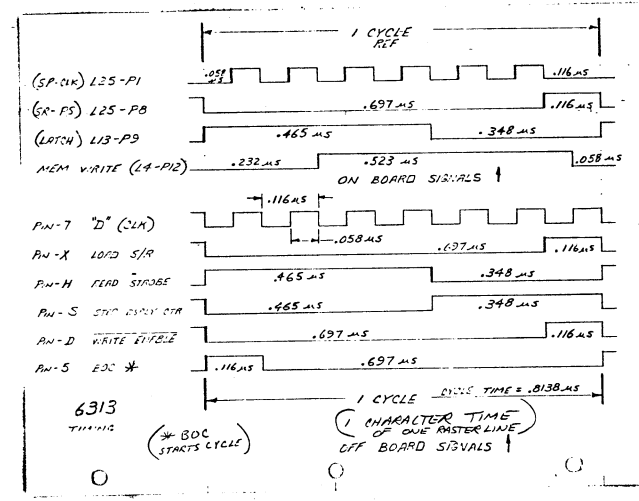 1 CYCLE
REF
(SP-CLK) L25-P1 .058 µs .116 µs
(SR-PS) L25-P8 .697 µs .116 µs
(LATCH) L13-P9 .465 µs .348 µs
MEM WRITE (L4-P12) .232 µs .523 µs .058 µs
ON BOARD SIGNALS
.116 µs
PIN-7 "D" (CLK)
.058 µs
PIN-X LOAD S/R .697 µs .116 µs
PIN-H READ STROBE .465 µs .348 µs
PIN-S .465 µs .348 µs
PIN-D WRITE ENABLE .697 µs .116 µs
PIN-5 BOC * .116 µs .697 µs
1 CYCLE CYCLE TIME = .8138 µs
6313
TIMING
(* BOC
STARTS CYCLE)
(1 CHARACTER TIME
OF ONE RASTER LINE)
OFF BOARD SIGNALS